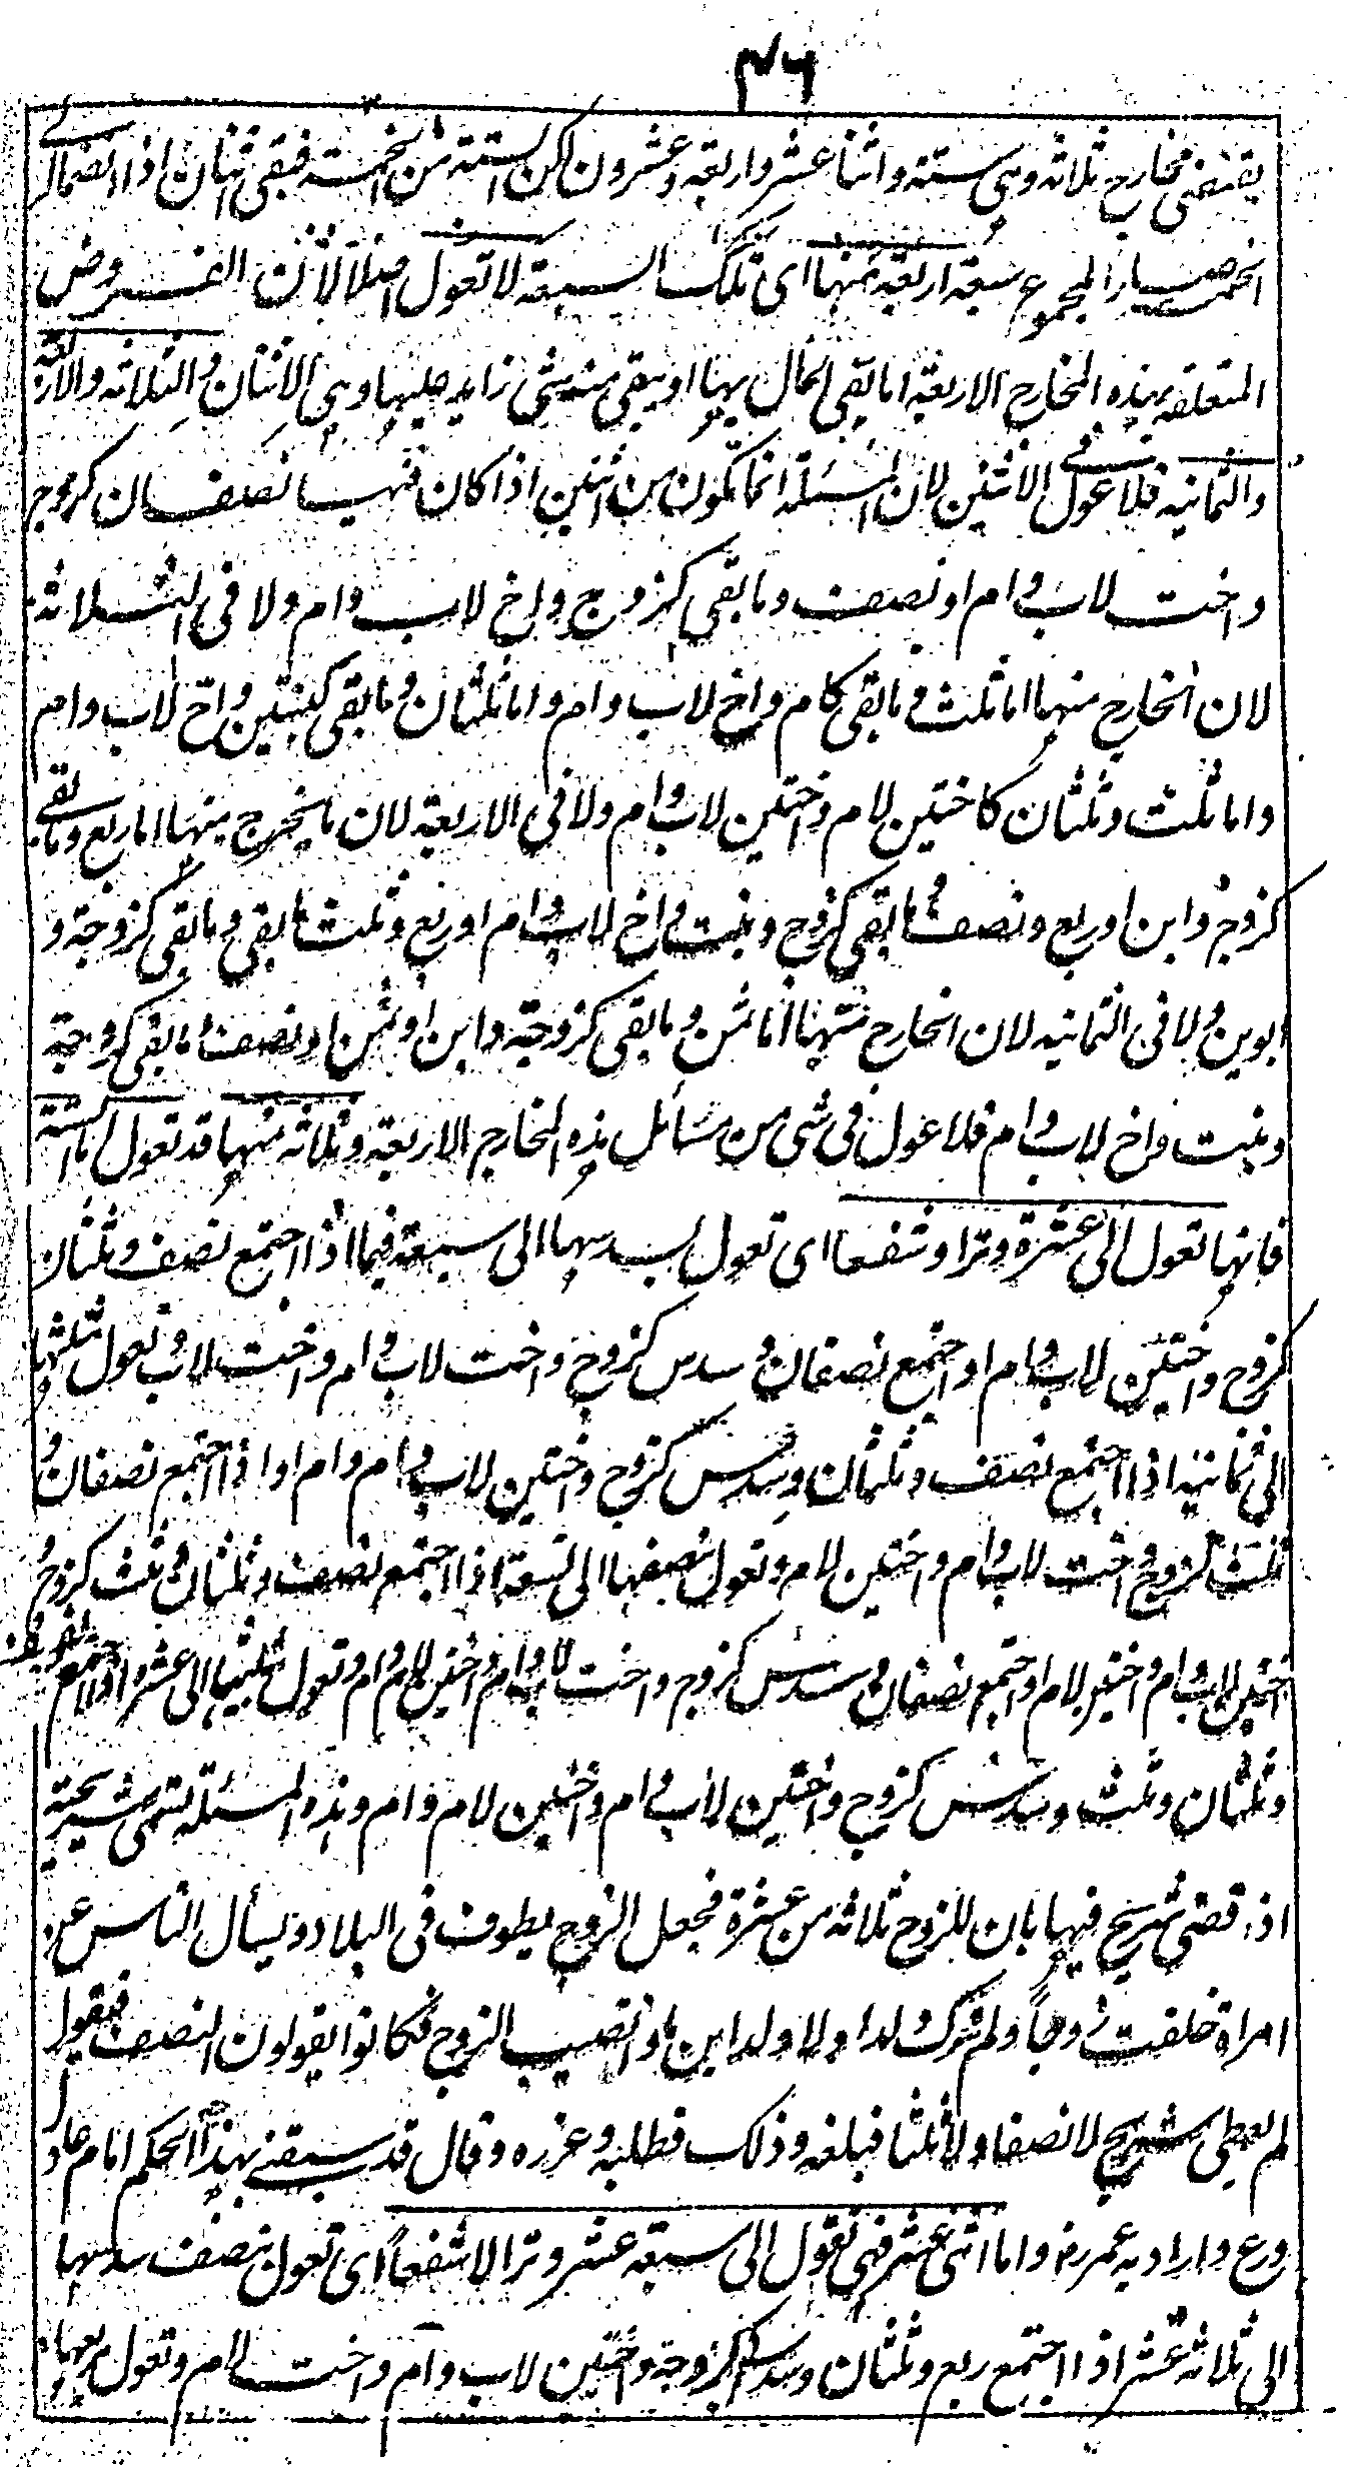 ٤٦
يقتضى مخارج ثلاثه وهى ستته واثنا عشر واربعة وعشرون لكن الستة من الخمسة فبقى اثنان اذا انضما الى
الخمسة صار المجموع سبعة اربعة منها اى تلك السبعة لا تعول اصلا لان الفروض
المتعلقه بهذه المخارج الاربعة اما يقى المال بها او يبقى منه شى زايد عليها وهى الاثنان والثلاثه والاربعة
والثمانيه فلا عول فى الاثنين لان المسئلة انما تكون من اثنين اذا كان فيها نصفان كزوج
واخت لاب وام او نصف وما بقى كزوج واخ لاب وام ولا فى الثلاثه
لان الخارج منها اما ثلث وما بقى كام واخ لاب وام واما ثلثان وما بقى كبنتين واخ لاب وام
واما ثلث وثلثان كاختين لام واختين لاب وام ولا فى الاربعة لان ما يخرج منها اما ربع وما بقى
كزوج وابن او ربع ونصف وما بقى كزوج وبنت واخ لاب وام او ربع وثلث ما بقى وما بقى كزوجة و
ابوين ولا فى الثمانيه لان الخارج منها اما ثمن وما بقى كزوجة وابن او ثمن ونصف وما بقى كزوجة
وبنت واخ لاب وام فلا عول فى شى من مسائل هذه المخارج الاربعة وثلاثه منها قد تعول اما الستة
فانها تعول الى عشرة وترا وشفعا اى تعول بسدسها الى سبعة فيما اذا اجتمع نصف وثلثان
كزوج واختين لاب وام او اجتمع نصفان وسدس كزوج واخت لاب وام واخت لاب وتعول بثلثها
الى ثمانية اذا اجتمع نصف وثلثان وسدس كزوج واختين لاب وام وام او اذا اجتمع نصفان و
ثلث كزوج واخت لاب وام واختين لام وتعول بنصفها الى تسعة اذا اجتمع نصف وثلثان وثلث كزوج و
اختين لاب وام واختين لام او اجتمع نصفان وسدس كزوج واخت لاب وام واختين لام وام وتعول بثلثيها الى عشرة اذا اجتمع نصف
وثلثان وثلث وسدس كزوج واختين لاب وام واختين لام وام وهذه المسئلة تسمى شريحية
اذ قضى شريح فيها بان للزوج ثلاثه من عشرة فجعل الزوج يطوف فى البلاد ويسأل الناس عن
امراة خلفت زوجاً ولم تترك ولدا ولا ولد ابن ماذا نصيب الزوج فكانوا يقولون النصف فيقول
لم يعطى شريح لا نصفا ولا ثلثا فبلغه وذلك فطلبه وعزره وقال قد سبقنى بهذا الحكم امام عادل
ورع واراد به عمر رض واما اثنى عشر فهى تعول الى سبعة عشر وترا لا شفعاً اى تعول بنصف سدسها
الى ثلاثه عشر اذا اجتمع ربع وثلثان وسدس كزوجة واختين لاب وام واخت لام وتعول بربعها